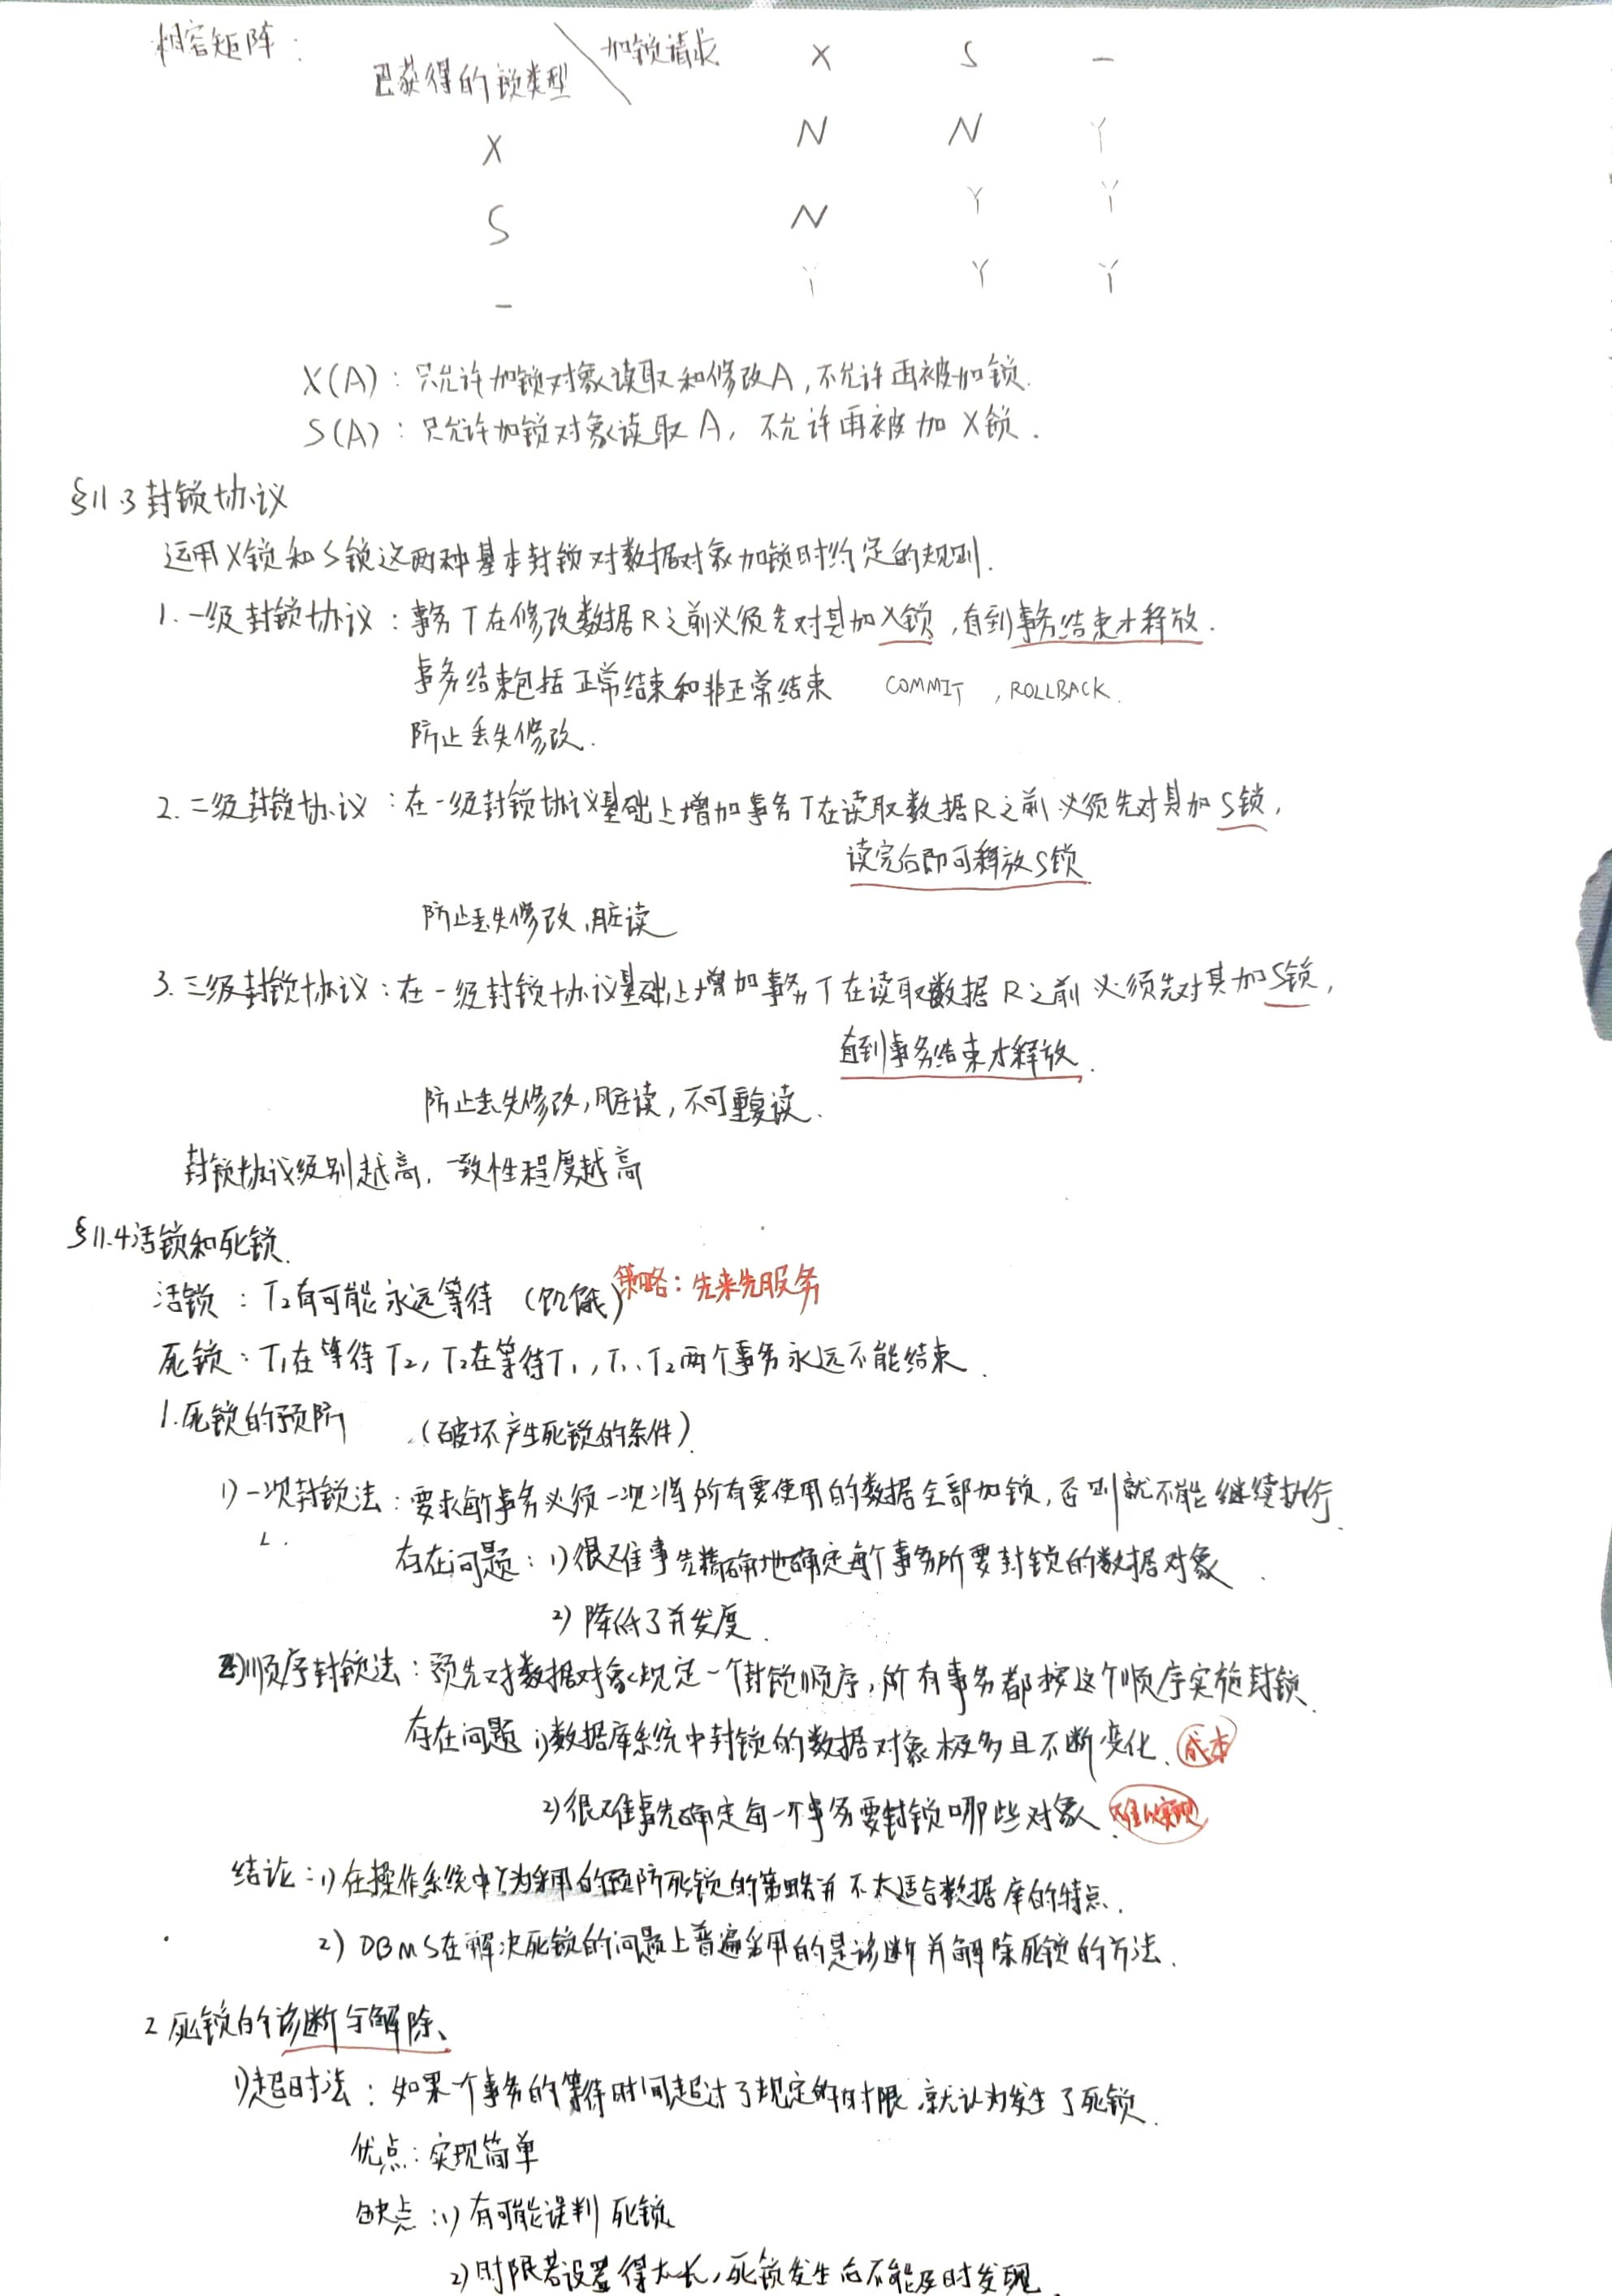 相容矩阵:
已获得的锁类型 \ 加锁请求 X S —
X N N Y
S N Y Y
— Y Y Y
X(A): 只允许加锁对象读取和修改A,不允许再被加锁.
S(A): 只允许加锁对象读取A, 不允许再被加X锁.
§11.3 封锁协议
运用X锁和S锁这两种基本封锁对数据对象加锁时约定的规则.
1. 一级封锁协议: 事务T在修改数据R之前必须先对其加X锁,直到事务结束才释放.
事务结束包括正常结束和非正常结束 COMMIT , ROLLBACK.
防止丢失修改.
2. 二级封锁协议: 在一级封锁协议基础上增加事务T在读取数据R之前必须先对其加S锁,
读完后即可释放S锁
防止丢失修改,脏读
3. 三级封锁协议: 在一级封锁协议基础上增加事务T在读取数据R之前必须先对其加S锁,
直到事务结束才释放.
防止丢失修改,脏读,不可重复读.
封锁协议级别越高,一致性程度越高
§11.4 活锁和死锁.
活锁: T₂有可能永远等待 (饥饿) 策略: 先来先服务
死锁: T₁在等待T₂, T₂在等待T₁, T₁、T₂两个事务永远不能结束.
1. 死锁的预防 (破坏产生死锁的条件)
1) 一次封锁法: 要求每个事务必须一次将所有要使用的数据全部加锁,否则就不能继续执行.
存在问题: 1) 很难事先精确地确定每个事务所要封锁的数据对象.
2) 降低了并发度.
2) 顺序封锁法: 预先对数据对象规定一个封锁顺序,所有事务都按这个顺序实施封锁.
存在问题 1) 数据库系统中封锁的数据对象极多且不断变化. 成本
2) 很难事先确定每一个事务要封锁哪些对象. 难以实现
结论: 1) 在操作系统中广为采用的预防死锁的策略并不太适合数据库的特点.
2) DBMS在解决死锁的问题上普遍采用的是诊断并解除死锁的方法.
2 死锁的诊断与解除、
1) 超时法: 如果一个事务的等待时间超过了规定的时限,就认为发生了死锁.
优点: 实现简单
缺点: 1) 有可能误判死锁
2) 时限若设置得太长,死锁发生后不能及时发现.